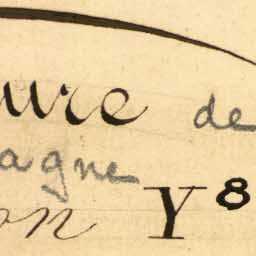 ure de
agne
on Y⁸